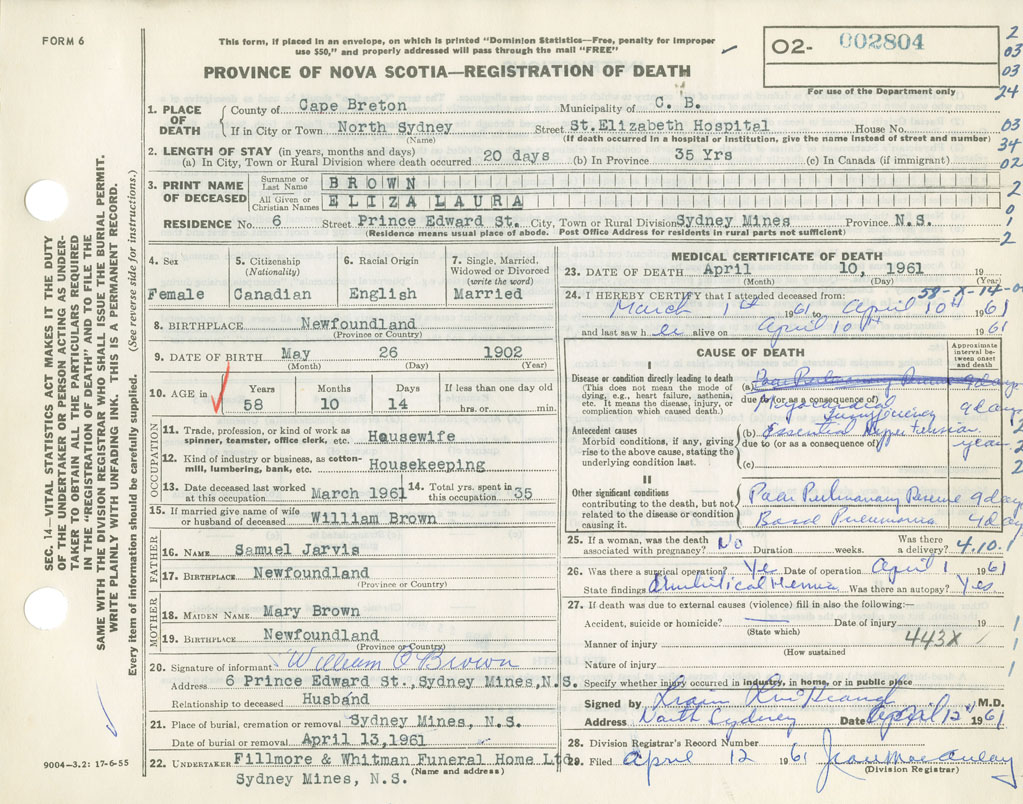 FORM 6
This form, if placed in an envelope, on which is printed "Dominion Statistics—Free, penalty for improper
use $50," and properly addressed will pass through the mail "FREE"
O2- 002804
For use of the Department only
PROVINCE OF NOVA SCOTIA—REGISTRATION OF DEATH
2
03
03
24
03
34
02
2
0
1
2
1. PLACE OF DEATH
County of Cape Breton Municipality of C. B.
If in City or Town North Sydney Street St.Elizabeth Hospital House No.
(Name) (If death occurred in a hospital or institution, give the name instead of street and number)
2. LENGTH OF STAY (in years, months and days)
(a) In City, Town or Rural Division where death occurred 20 days (b) In Province 35 Yrs (c) In Canada (if immigrant)
3. PRINT NAME OF DECEASED
Surname or Last Name BROWN
All Given or Christian Names ELIZA LAURA
RESIDENCE No. 6 Street Prince Edward St. City, Town or Rural Division Sydney Mines Province N.S.
(Residence means usual place of abode. Post Office Address for residents in rural parts not sufficient)
4. Sex
Female
5. Citizenship
(Nationality)
Canadian
6. Racial Origin
English
7. Single, Married,
Widowed or Divorced
(write the word)
Married
8. BIRTHPLACE Newfoundland
(Province or Country)
9. DATE OF BIRTH May 26 1902
(Month) (Day) (Year)
10. AGE in
Years Months Days If less than one day old
58 10 14 hrs. or min.
OCCUPATION
11. Trade, profession, or kind of work as
spinner, teamster, office clerk, etc. Housewife
12. Kind of industry or business, as cotton-
mill, lumbering, bank, etc. Housekeeping
13. Date deceased last worked
at this occupation March 1961
14. Total yrs. spent in
this occupation 35
15. If married give name of wife
or husband of deceased William Brown
FATHER
16. NAME Samuel Jarvis
17. BIRTHPLACE Newfoundland
(Province or Country)
MOTHER
18. MAIDEN NAME Mary Brown
19. BIRTHPLACE Newfoundland
(Province or Country)
20. Signature of informant William O Brown
Address 6 Prince Edward St.,Sydney Mines,N.S.
Relationship to deceased Husband
21. Place of burial, cremation or removal Sydney Mines, N.S.
Date of burial or removal April 13,1961
22. UNDERTAKER Fillmore & Whitman Funeral Home Ltd.
(Name and address)
Sydney Mines, N.S.
MEDICAL CERTIFICATE OF DEATH
23. DATE OF DEATH April 10, 1961 19
(Month) (Day) (Year)
58-X-14-0
24. I HEREBY CERTIFY that I attended deceased from:
March 1st 1961 to April 10th 1961
and last saw her alive on April 10th 1961
CAUSE OF DEATH
Approximate
interval be-
tween onset
and death
I
Disease or condition directly leading to death
(This does not mean the mode of
dying, e.g., heart failure, asthenia,
etc. It means the disease, injury, or
complication which caused death.)
(a) Poor Pulmonary Reserve 9 days
due to (or as a consequence of)
Myocardial
Insufficiency 9 days
Antecedent causes
Morbid conditions, if any, giving
rise to the above cause, stating the
underlying condition last.
(b) Essential Hypertension
due to (or as a consequence of) years
(c)
2
2
II
Other significant conditions
contributing to the death, but not
related to the disease or condition
causing it.
Poor Pulmonary Reserve 9 days
Basal Pneumonia 4 days
25. If a woman, was the death
associated with pregnancy? No Duration weeks.
Was there
a delivery? 4.10.1
26. Was there a surgical operation? Yes Date of operation April 1 1961
State findings Umbilical Hernia Was there an autopsy? Yes
27. If death was due to external causes (violence) fill in also the following:—
Accident, suicide or homicide? Date of injury 19
(State which)
Manner of injury 443X
(How sustained
Nature of injury
1
1
1
Specify whether injury occurred in industry, in home, or in public place
Signed by M.D.
Address North Sydney Date April 12 1961
28. Division Registrar's Record Number
29. Filed April 12 1961 Jean MacAulay
(Division Registrar)
SEC. 14—VITAL STATISTICS ACT MAKES IT THE DUTY
OF THE UNDERTAKER OR PERSON ACTING AS UNDER-
TAKER TO OBTAIN ALL THE PARTICULARS REQUIRED
IN THE "REGISTRATION OF DEATH" AND TO FILE THE
SAME WITH THE DIVISION REGISTRAR WHO SHALL ISSUE THE BURIAL PERMIT.
WRITE PLAINLY WITH UNFADING INK. THIS IS A PERMANENT RECORD.
Every item of information should be carefully supplied. (See reverse side for instructions.)
9004-3.2: 17-6-55